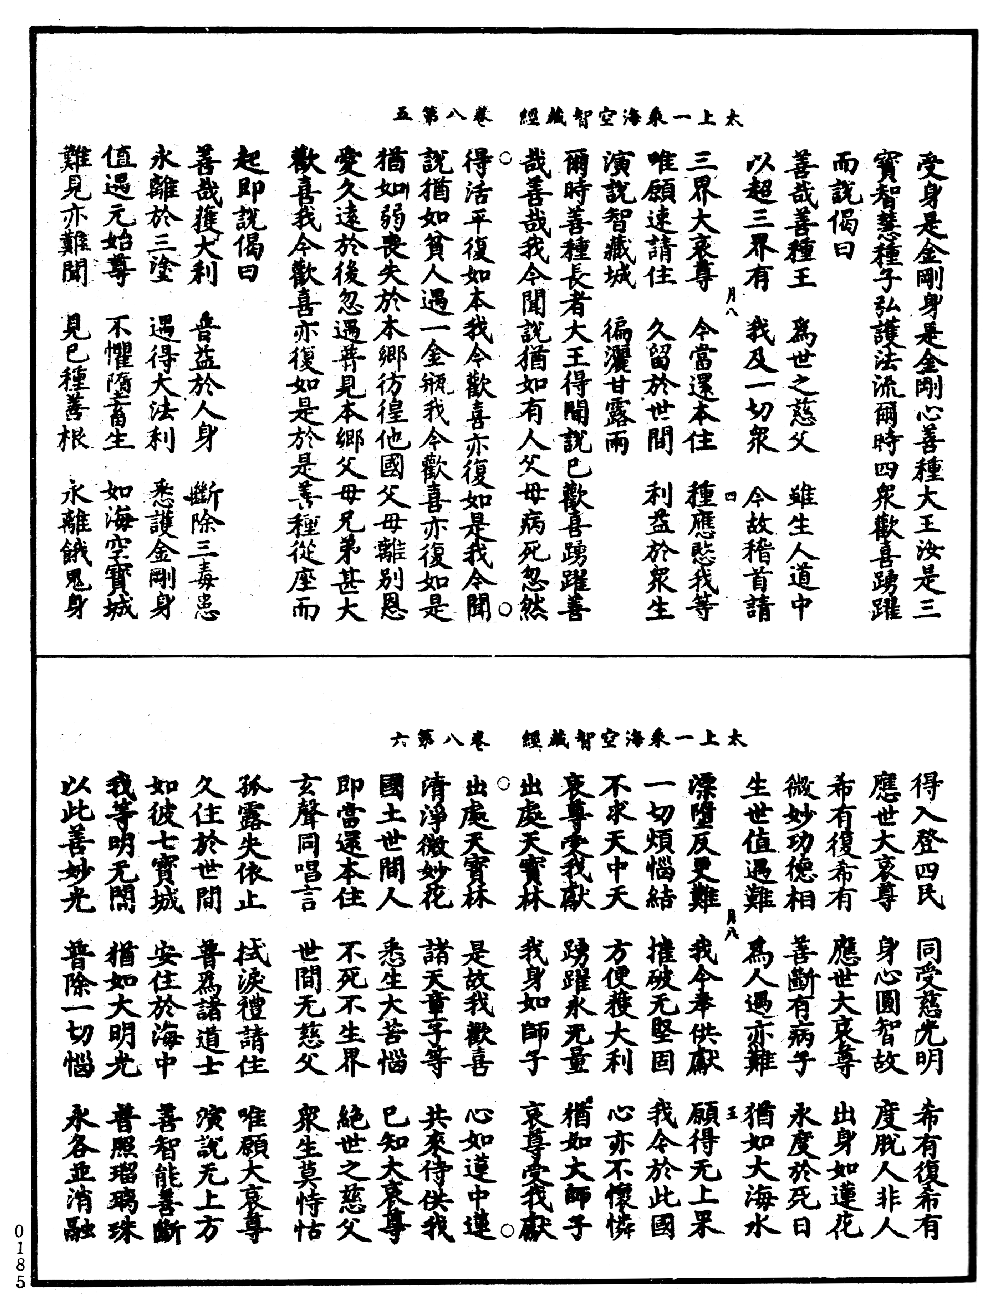 太上一乘海空智藏經　卷八第五
受身是金剛身是金剛心善種大王汝是三
寶智慧種子弘護法流爾時四衆歡喜踴躍
而說偈曰
善哉善種王　為世之慈父　雖生人道中
以超三界有　我及一切衆　今故稽首請
月八　四
三界大哀尊　今當還本住　種應愍我等
唯願速請住　久留於世間　利益於衆生
演說智藏城　徧灑甘露雨
爾時善種長者大王得聞說已歡喜踴躍善
哉善哉我今聞說猶如有人父母病死忽然
得活平復如本我今歡喜亦復如是我今聞
說猶如貧人遇一金瓶我今歡喜亦復如是
猶如弱喪失於本鄉彷徨他國父母離别恩
愛久遠於後忽遇普見本鄉父母兄弟甚大
歡喜我今歡喜亦復如是於是善種從座而
起即說偈曰
善哉獲大利　普益於人身　斷除三毒患
永離於三塗　遇得大法利　悉護金剛身
值遇元始尊　不懼墮畜生　如海空寶城
難見亦難聞　見已種善根　永離餓鬼身
太上一乘海空智藏經　卷八第六
得入登四民　同受慈光明　希有復希有
應世大哀尊　身心圓智故　度脫人非人
希有復希有　應世大哀尊　出身如蓮花
微妙功德相　善斷有病子　永度於死日
生世值遇難　為人遇亦難　猶如大海水
月八　五
漂墮反更難　我今奉供獻　願得无上果
一切煩惱結　摧破无堅固　我今於此國
不求天中天　方便獲大利　心亦不懷憐
哀尊受我獻　踴躍永无量　猶如大師子
出處天寶林　我身如師子　哀尊受我獻
出處天寶林　是故我歡喜　心如蓮中蓮
清淨微妙花　諸天童子等　共來侍供我
國土世間人　悉生大苦惱　已知大哀尊
即當還本住　不死不生界　絕世之慈父
玄聲同唱言　世間无慈父　衆生莫恃怙
孤露失依止　拭淚禮請住　唯願大哀尊
久住於世間　普為諸道士　演說无上方
如彼七寶城　安住於海中　善智能善斷
我等明无闇　猶如大明光　普照瑠璃珠
以此善妙光　普除一切惱　永各並消融
0185